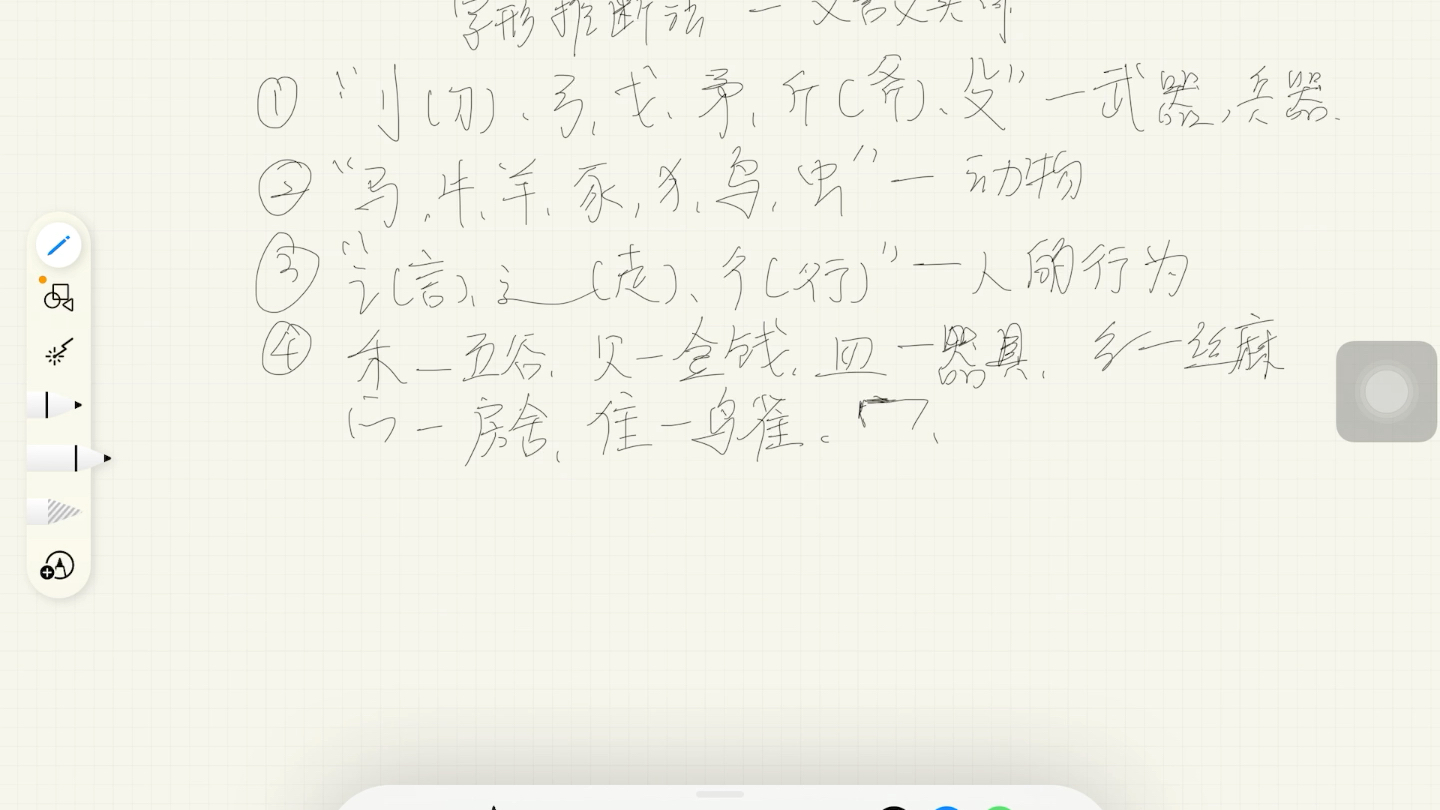 字形推断法 — 文言文实词
① “刂(刀)、弓、戈、矛、斤(斧)、殳” — 武器、兵器.
② “马、牛、羊、豕、犭、鸟、虫” — 动物
③ “讠(言)、辶(走)、彳(行)” — 人的行为
④ 禾 — 五谷、贝 — 金钱、皿 — 器具、纟 — 丝麻
宀 — 房舍、隹 — 鸟雀。冖、